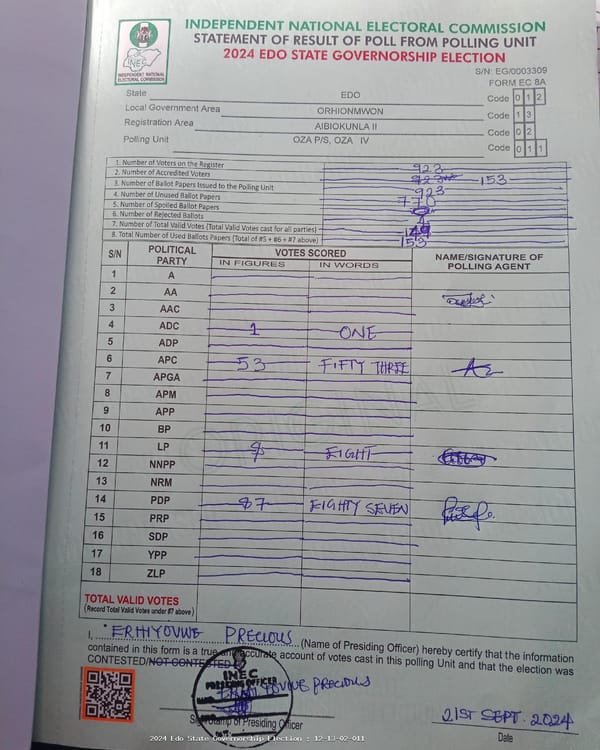 INDEPENDENT NATIONAL ELECTORAL COMMISSION
STATEMENT OF RESULT OF POLL FROM POLLING UNIT
2024 EDO STATE GOVERNORSHIP ELECTION
INEC
INDEPENDENT NATIONAL
ELECTORAL COMMISSION
S/N: EG/0003309
FORM EC 8A
State EDO Code 0 1 2
Local Government Area ORHIONMWON Code 1 3
Registration Area AIBIOKUNLA II Code 0 2
Polling Unit OZA P/S, OZA IV Code 0 1 1
1. Number of Voters on the Register 923
2. Number of Accredited Voters 923 153
3. Number of Ballot Papers Issued to the Polling Unit 923
4. Number of Unused Ballot Papers 770
5. Number of Spoiled Ballot Papers
6. Number of Rejected Ballots 4
7. Number of Total Valid Votes (Total Valid Votes cast for all parties) 149
8. Total Number of Used Ballots Papers (Total of #5 + #6 + #7 above) 153
S/N POLITICAL PARTY VOTES SCORED NAME/SIGNATURE OF POLLING AGENT
IN FIGURES IN WORDS
1 A
2 AA
3 AAC
4 ADC 1 ONE
5 ADP
6 APC 53 FIFTY THREE
7 APGA
8 APM
9 APP
10 BP
11 LP 8 EIGHT
12 NNPP
13 NRM
14 PDP 87 EIGHTY SEVEN
15 PRP
16 SDP
17 YPP
18 ZLP
TOTAL VALID VOTES
(Record Total Valid Votes under #7 above)
I, ERHIYOVWE PRECIOUS (Name of Presiding Officer) hereby certify that the information
contained in this form is a true and accurate account of votes cast in this polling Unit and that the election was
CONTESTED/NOT CONTESTED
INEC
PRESIDING OFFICER
PRECIOUS
Stamp of Presiding Officer
21ST SEPT. 2024
Date
2024 Edo State Governorship Election : 12-13-02-011